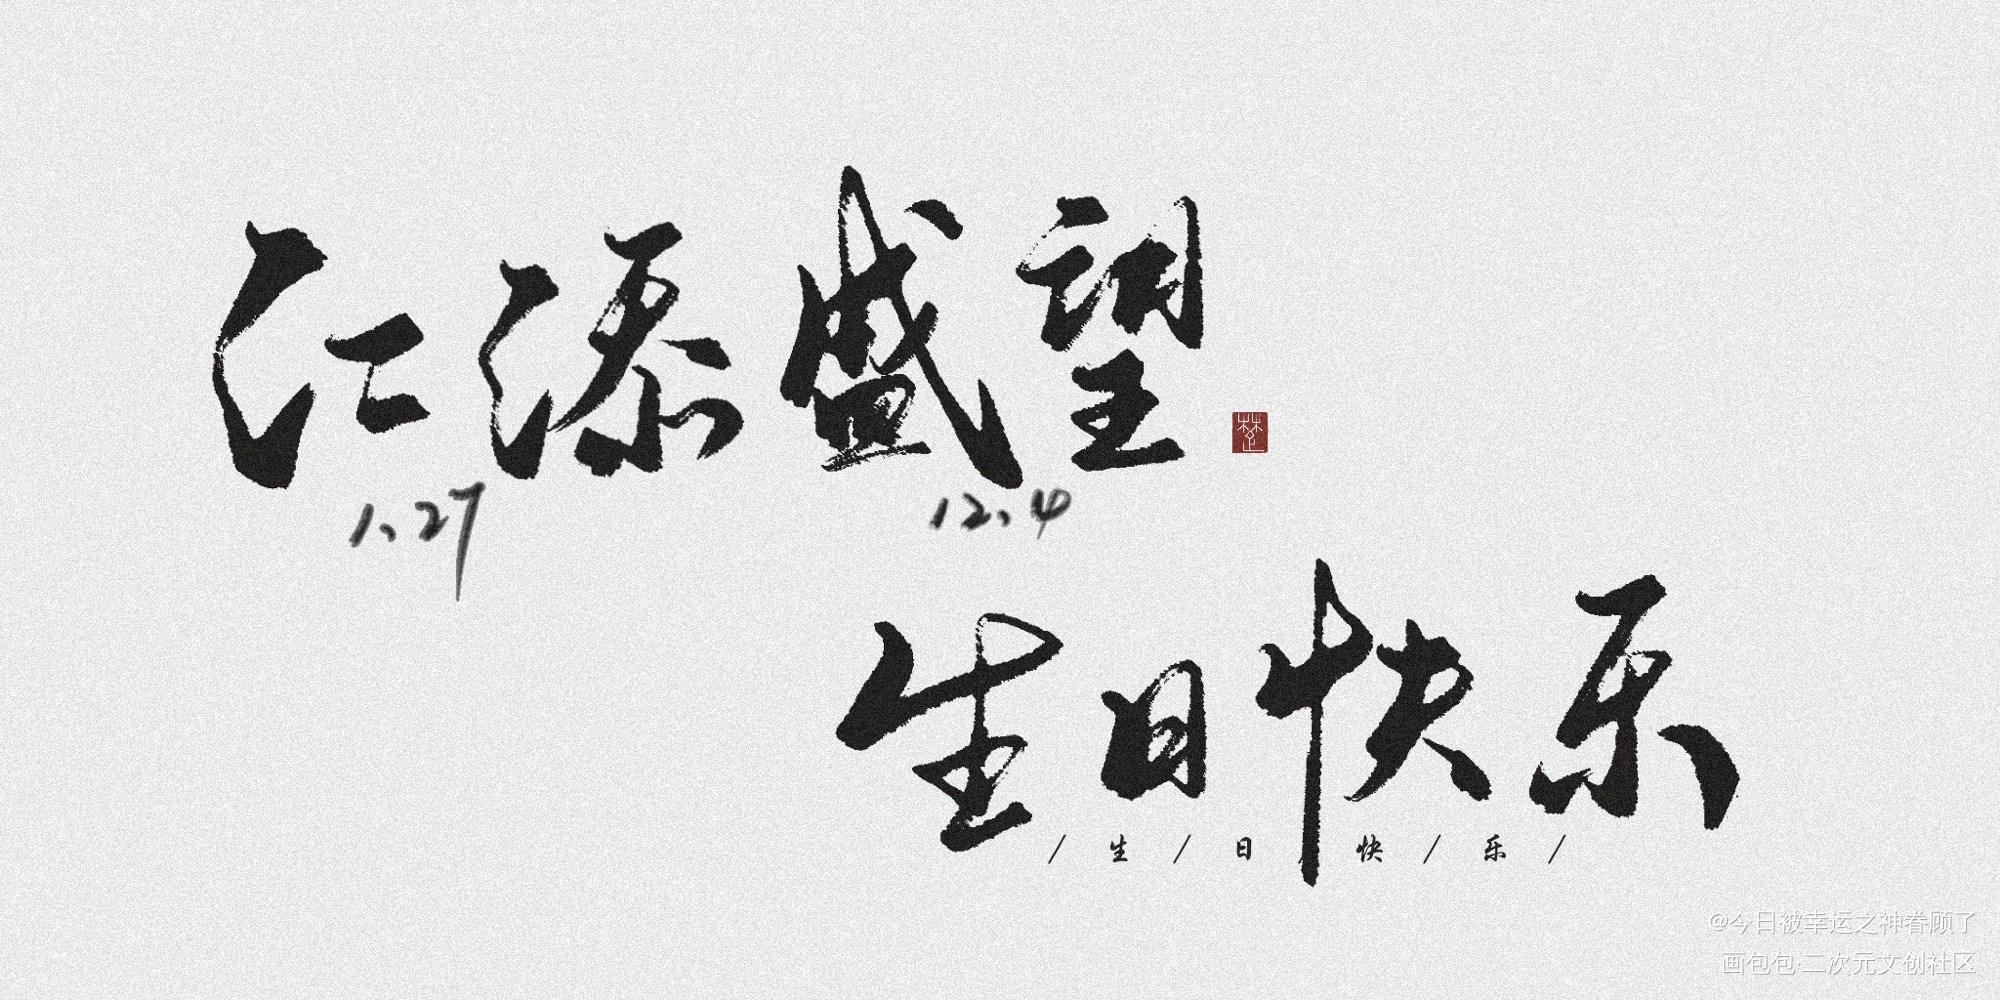 江添盛望
楚
1.27 12.4
生日快乐
/ 生 / 日 / 快 / 乐 /
@今日被幸运之神眷顾了
画包包·二次元文创社区